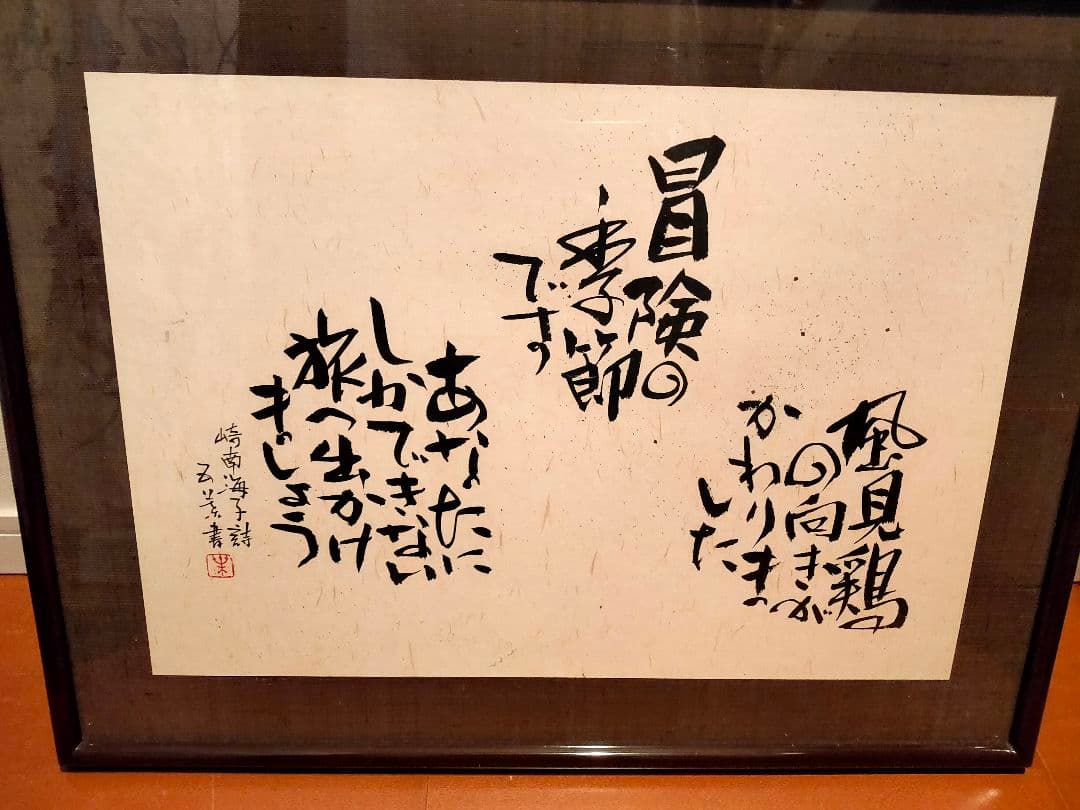 風見鶏
の向きが
かわりま
した
冒険の
季節
です
あなたに
しかできない
旅へ出かけ
ましょう
崎南海子詩